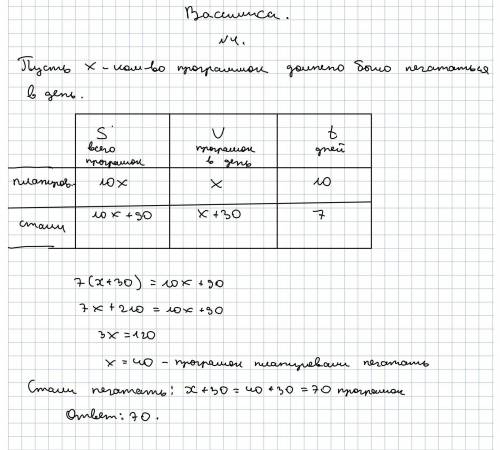 Василиса.
№4.
Пусть x - кол-во программок должно было печататься
в день.
S V t
всего програмок програмок в день дней
планиров. 10x x 10
стали 10x+90 x+30 7
7(x+30) = 10x+90
7x+210 = 10x+90
3x=120
x=40 - програмок планировали печатать
Стали печатать: x+30=40+30=70 програмок
Ответ: 70.